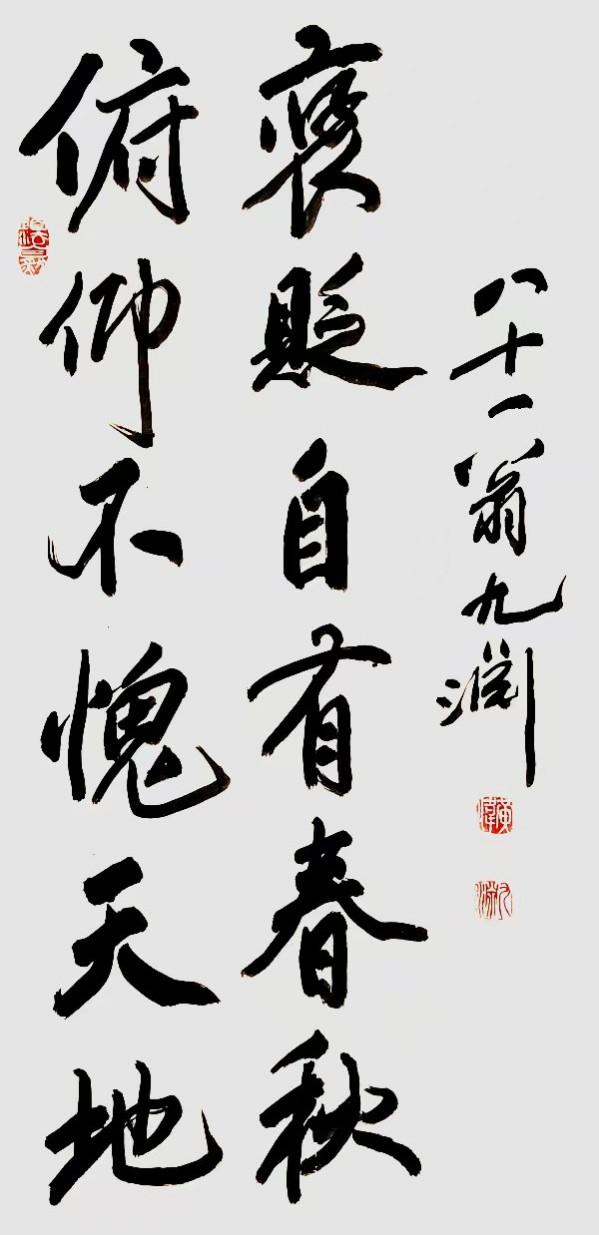 俯仰不愧天地
褒貶自有春秋
八十一翁九渊